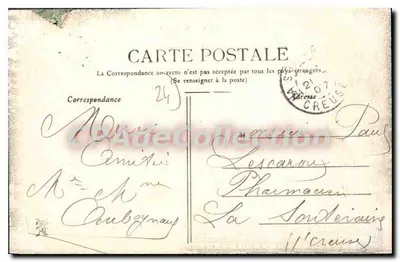 CARTE POSTALE
La Correspondance au recto n'est pas acceptée par tous les pays étrangers
(Se renseigner à la poste)
Correspondance
Adresse
24
CREUSE
21
07
CPACollection
Merci
Amitiés
Mr Mme
Monsieur Paul
Lescaroux
Pharmacien
La Souterraine
Creuse